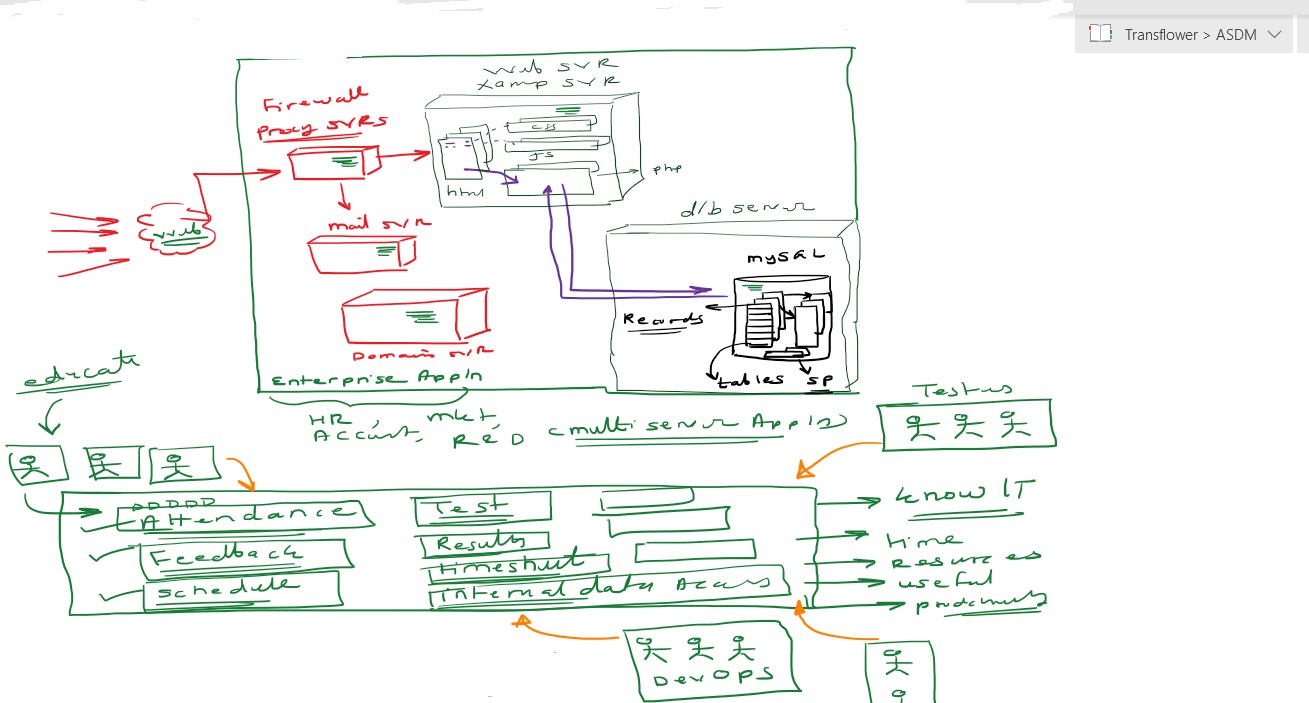 Transflower > ASDM
Web SVR
Xamp SVR
Firewall
Proxy SVRS
css
JS
php
html
web
mail SVR
d/b server
mySQL
Records
tables
SP
Domain SVR
Enterprise Appln
HR, mkt,
Accunt, R&D
(multi server Appln)
Testers
educate
DDDDD
Attendance
Feedback
Schedule
Test
Results
timesheet
internal data Access
know IT
time
Resources
useful
DevOps